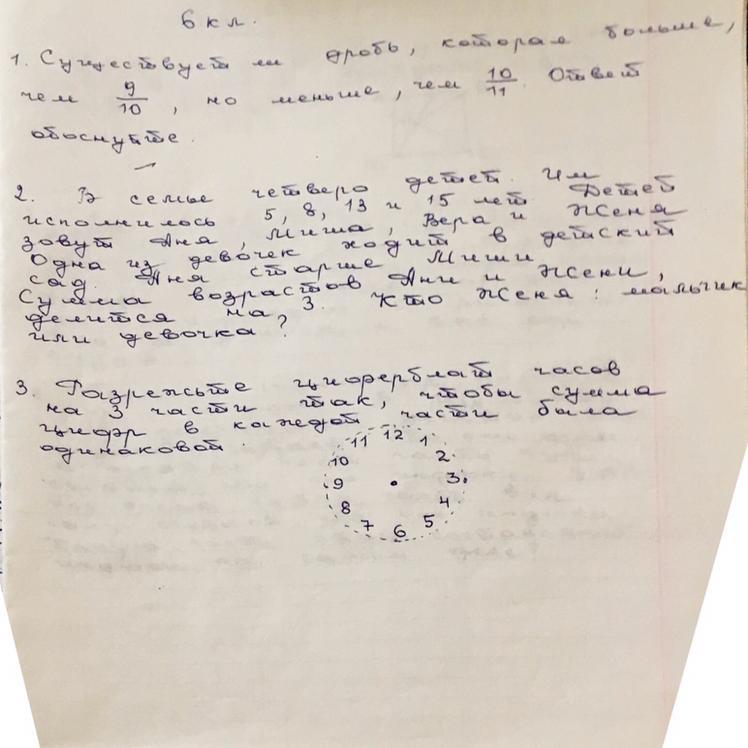 6 кл.
1. Существует ли дробь, которая больше,
чем 9/10, но меньше, чем 10/11. Ответ
обоснуйте.
2. В семье четверо детей. Им
исполнилось 5, 8, 13 и 15 лет. Детей
зовут Аня, Миша, Вера и Женя.
Одна из девочек ходит в детский
сад. Аня старше Миши.
Сумма возрастов Ани и Жени,
делится на 3. Кто Женя: мальчик
или девочка?
3. Разрежьте циферблат часов
на 3 части так, чтобы сумма
цифр в каждой части была
одинаковой.
11 12 1
10 2
9 3
8 4
7 6 5